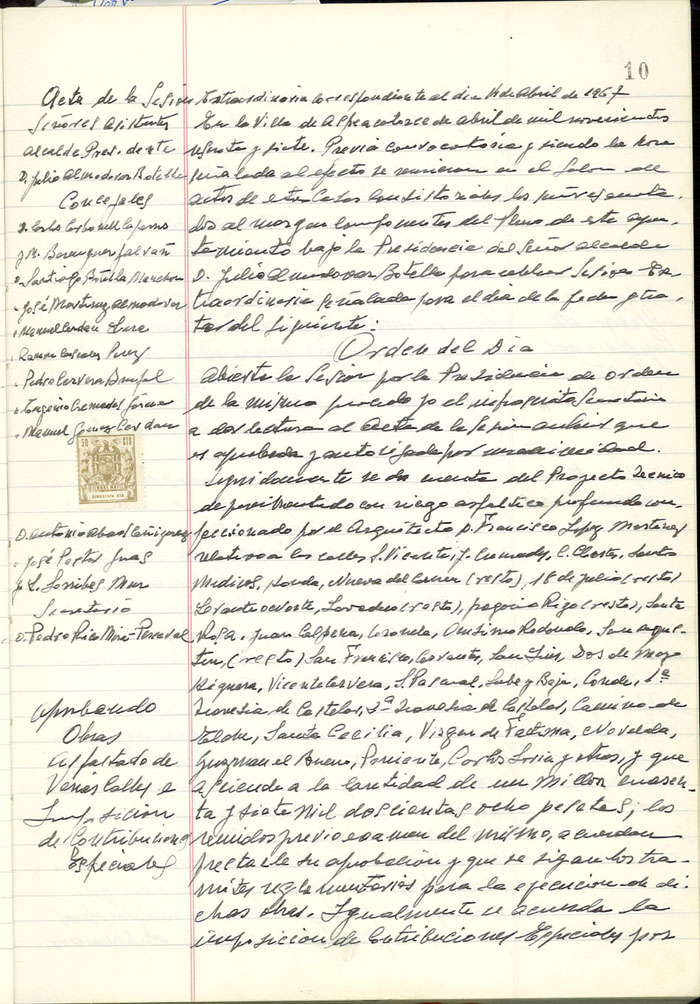 10
Acta de la Sesión Extraordinaria correspondiente al dia 14 de Abril de 1967
Señores Asistentes
Alcalde Presidente
D. Julio Almodovar Botella
Concejales
D. Carlos Carbonell
J. M. Berenguer
" Santiago Botella
" José Martinez Almodovar
" Manuel Cerdán
" Ramon Perez
" Pedro Cervera
" Eugenio Cremades
" Manuel Gomez Cerdan
50 CTS
D. Antonio Abad
" José Pastor
J. L. Sorribes Mur
Secretario
D. Pedro Rico Mira-Perceval
Aprobando
Obras
Asfaltado de
Varias Calles e
Imposición
de Contribuciones
Especiales
En la Villa de Aspe a catorce de abril de mil novecientos
sesenta y siete. Previa convocatoria y siendo la hora
señalada al efecto se reunieron en el Salon de
actos de esta Casa Consistorial los señores anota-
dos al margen componentes del Pleno de este Ayun-
tamiento bajo la Presidencia del Señor Alcalde
D. Julio Almodovar Botella para celebrar Sesion Ex-
traordinaria señalada para el dia de la fecha y tra-
tar del siguiente:
Orden del Dia
Abierta la Sesion por la Presidencia de orden
de la misma procedo yo el infrascrito Secretario
a dar lectura al Acta de la Sesion anterior que
es aprobada y autorizada por unanimidad.
Seguidamente se da cuenta del Proyecto Tecnico
de pavimentado con riego asfaltico profundo con-
feccionado por el Arquitecto D. Francisco Lopez Martinez
relativo a las calles S. Vicente, J. Cremades, C. Santos
Medicos, Honda, Nueva del Carmen (resto), 18 de julio (resto)
Levante Oeste, Lavadero (resto), Gregorio Rizo (resto), Santa
Rosa, Juan Calpena, Coronela, Onésimo Redondo, San Agus-
tin, (resto) San Francisco, Cervantes, San Luis, Dos de Mayo
Higuera, Vicente Cervera, S. Pascual, Sube y Baja, Conde, 1ª
Travesia de Castelar, 3ª Travesia de Castelar, Camino de
Elche, Santa Cecilia, Virgen de Fatima, Novelda,
Guzman el Bueno, Poniente, Carlos Soria y otros, y que
asciende a la cantidad de un Millon cuaren-
ta y siete Mil doscientas ocho pesetas; los
reunidos previo examen del mismo, acuerdan
prestarle su aprobación y que se sigan los tra-
mites reglamentarios para la ejecucion de di-
chas obras. Igualmente se acuerda la
imposicion de Contribuciones Especiales por